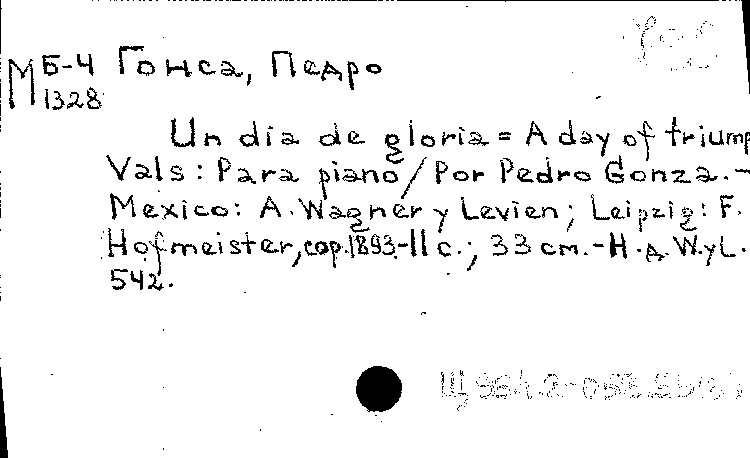 М Б-4 Гонса, Педро
1328
Un dia de gloria = A day of triump
Vals: Para piano / Por Pedro Gonza. –
Mexico: A. Wagner y Levien; Leipzig: F.
Hofmeister, cop. 1893.-11 с.; 33 см. - Н. д. W. y L.
542.